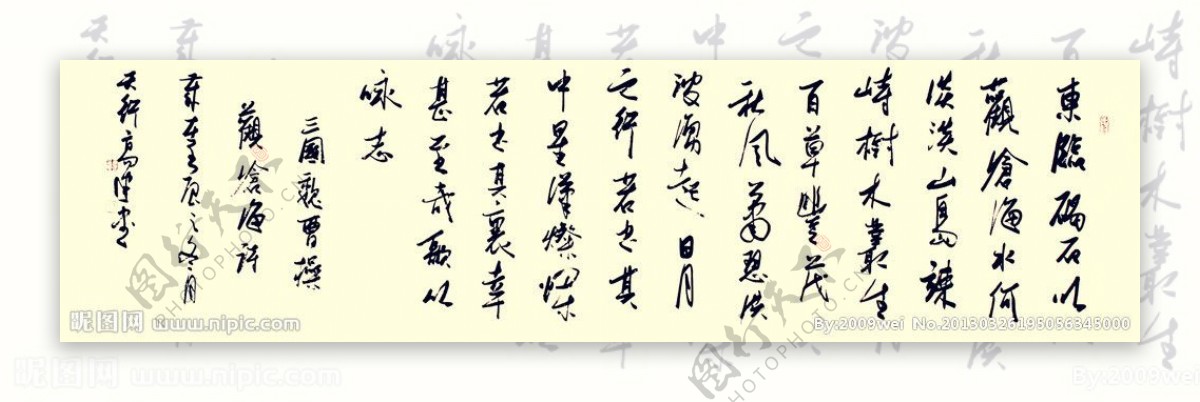 東臨碣石以
觀滄海水何
淡淡山島竦
峙樹木叢生
百草豐茂
秋風蕭瑟洪
波涌起日月
之行若出其
中星漢燦爛
若出其裏幸
甚至哉歌以
咏志
三國魏曹操
觀滄海詩
昵图网 www.nipic.com
By:2009wei No.20130326195056345000